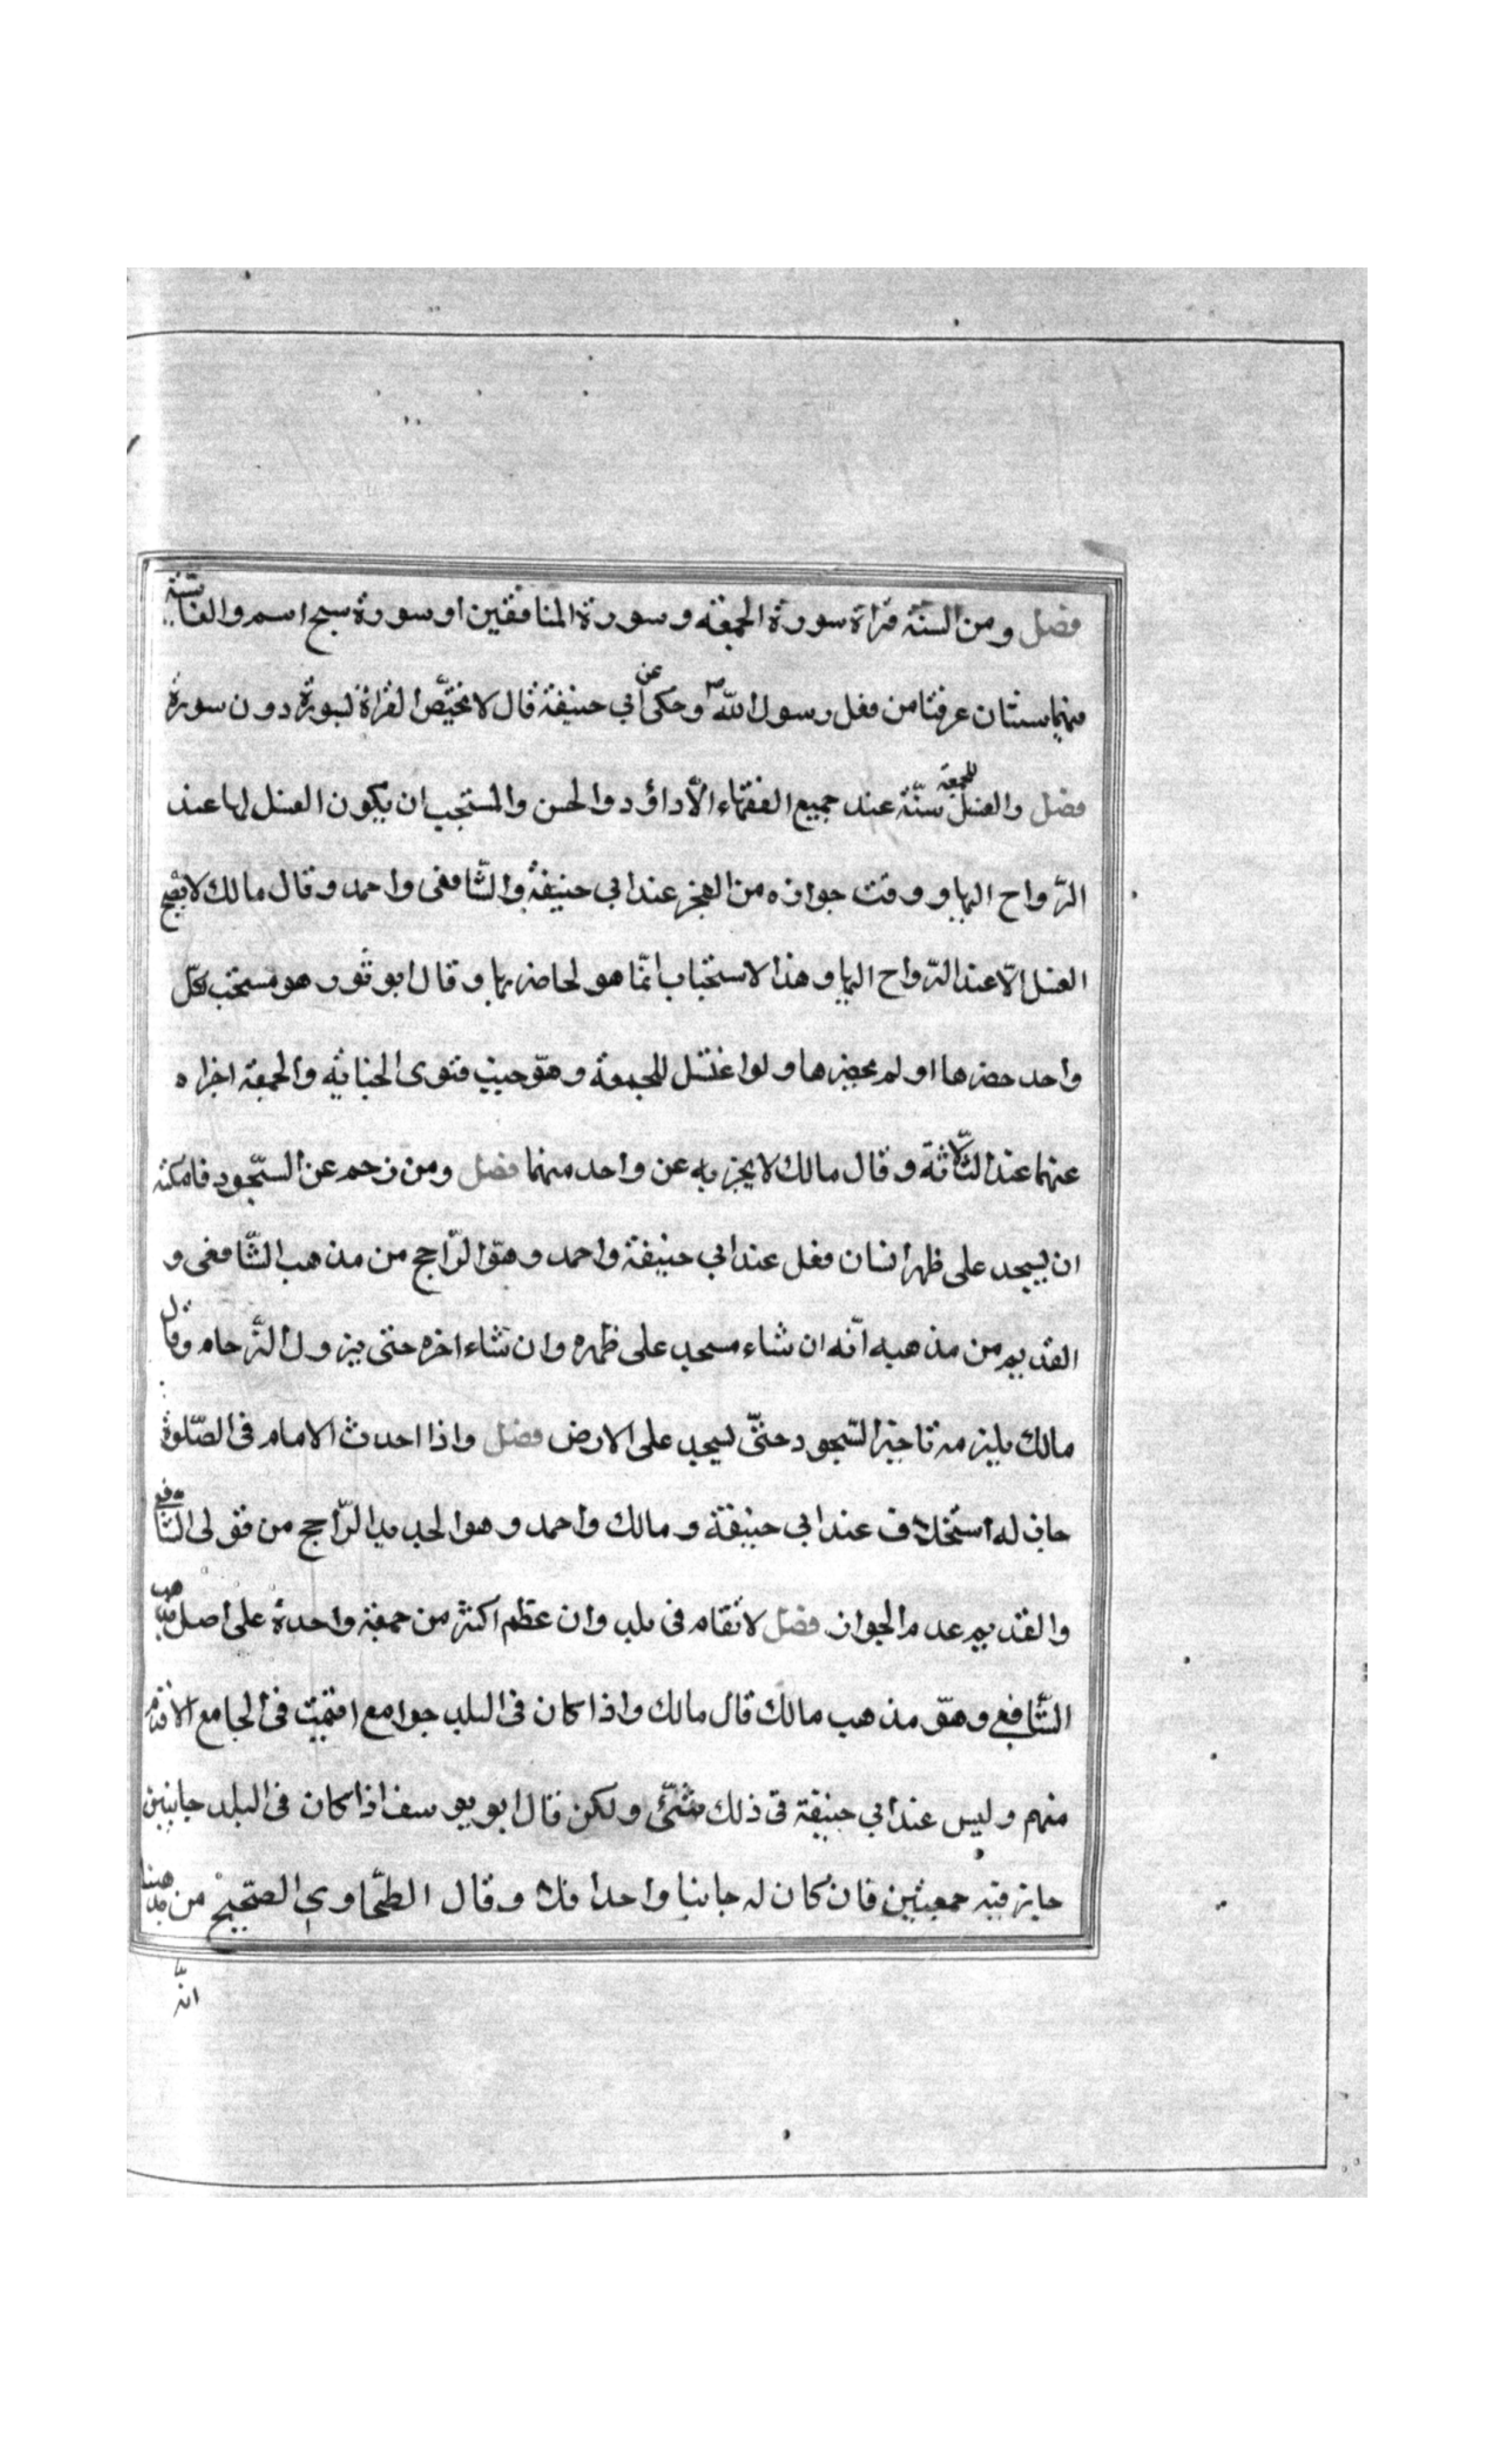 فصل ومن السنة قراة سورة الجمعة وسورة المنافقين او سورة سبح اسم والغاشية
فهما سنتان عرفتا من فعل رسول اللّه ص وحكى عن أبي حنيفة قال لا تختصّ القراة بسورة دون سورة
فصل والغسل للجمعة سنّة عند جميع الفقهاء الّا داؤد والحسن والمستحب ان يكون الغسل لها عند
الرّواح اليها ووقت جوازه من الفجر عند ابي حنيفة والشّافعى واحمد وقال مالك لا يصح
الغسل الّا عند الرّواح اليها وهذا الاستحباب انّما هو لحاضريها وقال ابو ثور هو مستحب لكلّ
واحد حضرها او لم يحضرها ولو اغتسل للجمعة وهو جنب فنوى الجنابة والجمعة اجزاه
عنهما عند الثّلاثة وقال مالك لا يجزيه عن واحد منهما فصل ومن زحم عن السّجود فامكنه
ان يسجد على ظهر انسان فعل عند ابي حنيفة واحمد وهو الرّاجح من مذهب الشّافعى و
القديم من مذهبه انّه ان شاء سجد على ظهره وان شاء اخره حتى يزول الزّحام وقال
مالك يلزمه تاخير السّجود حتّى يسجد على الارض فصل واذا احدث الامام فى الصّلوة
جاز له استخلاف عند ابي حنيفة ومالك واحمد وهو الجديد الرّاجح من قولى الشّافع
والقديم عدم الجواز فصل لا تقام فى بلد وان عظم اكثر من جمعة واحدة على اصل مذهب
الشّافع وهو مذهب مالك قال مالك واذا كان فى البلد جوامع اقيمت فى الجامع الاقدم
منهم وليس عند ابي حنيفة فى ذلك شئ ولكن قال ابو يوسف اذا كان فى البلد جانبين
جايز فيه جمعتين فان كان له جانبا واحدا فلا وقال الطحّاوي الصّحيح من مذهبنا
انّه